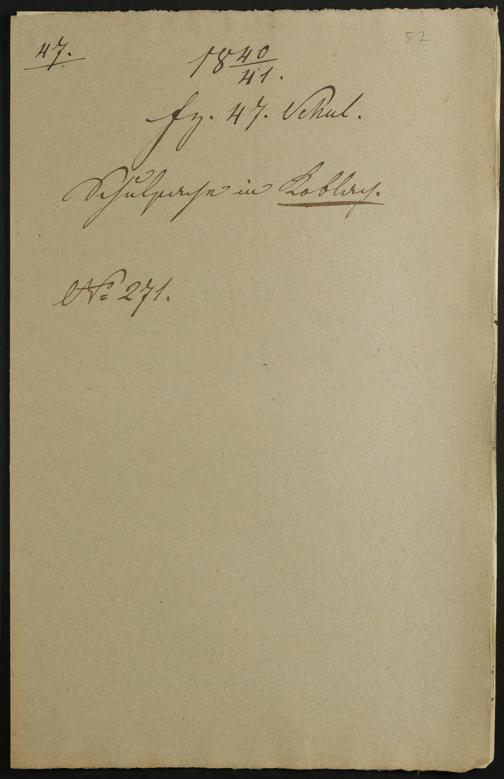 47.
52
18 40/41.
fz. 47. Schul.
Schulsache in Koblach.
No 271.